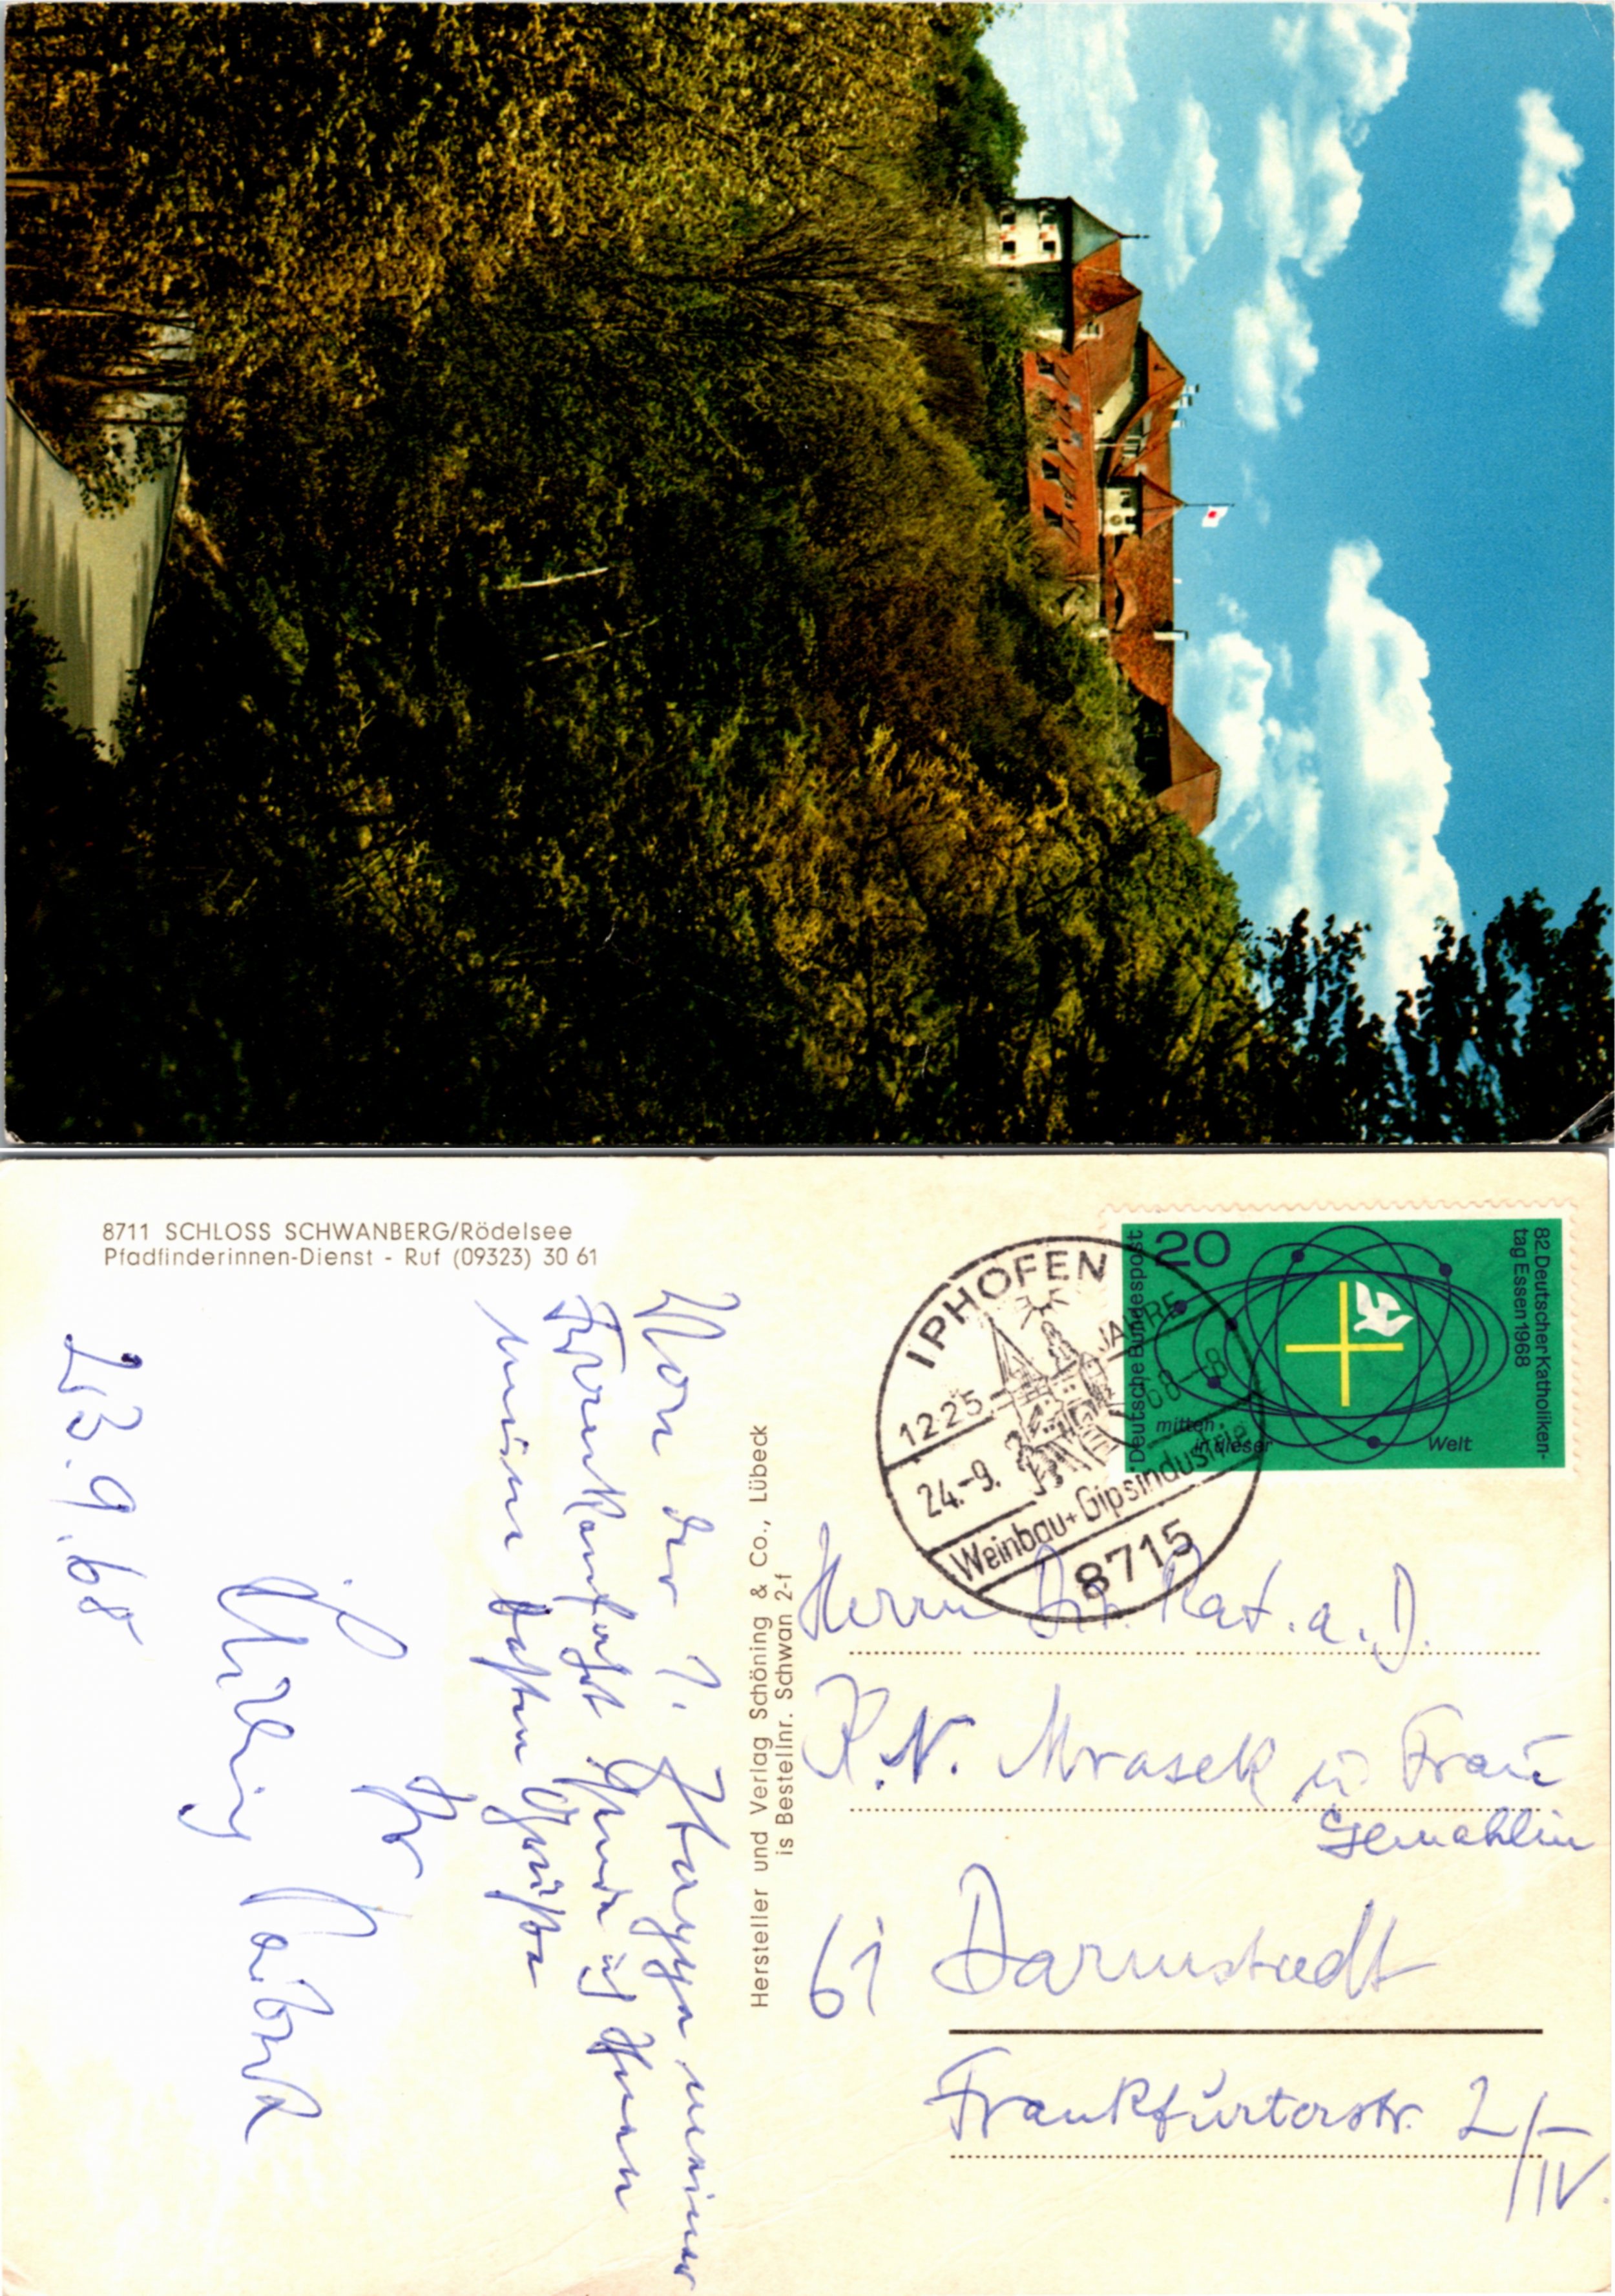 8711 SCHLOSS SCHWANBERG/Rödelsee
Pfadfinderinnen-Dienst - Ruf (09323) 30 61
Von der 1. meiner
Frankenfahrt sende ich Ihnen
meine besten Grüße
Ihr
23.9.68
Hersteller und Verlag Schöning & Co., Lübeck
is Bestellnr. Schwan 2-f
IPHOFEN
JAHRE
1225
68-8
24.-9.
Weinbau+Gipsindustrie
8715
Deutsche Bundespost
20
82.Deutscher Katholiken-
tag Essen 1968
mitten
in dieser
Welt
Herrn Dir. Rat. a. D.
K. N. Mrasek u. Frau
Gemahlin
61 Darmstadt
Frankfurterstr. 2/-
IV.